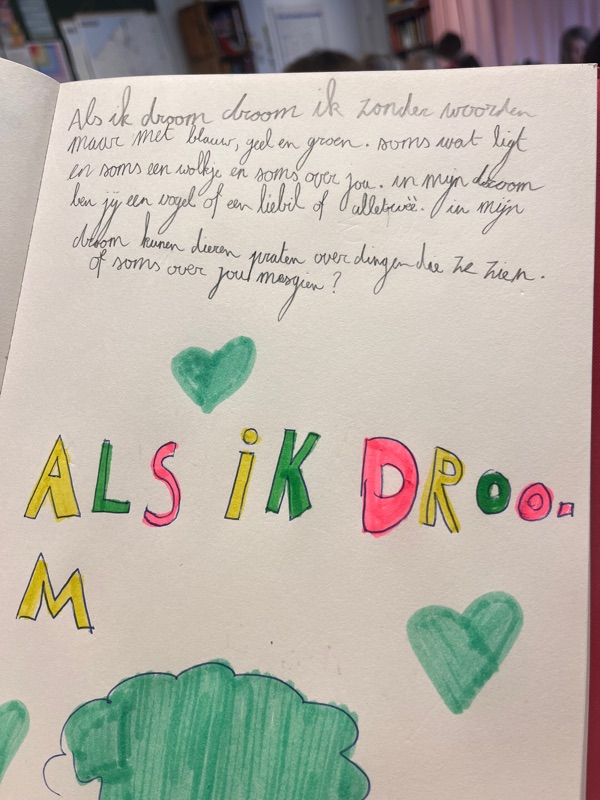 Als ik droom droom ik zonder woorden
maar met blauw, geel en groen. soms wat ligt
en soms een wolkje en soms over jou. in mijn droom
ben jij een vogel of een liebil of alletwëë. in mijn
droom kunen dieren praten over dingen die ze zien.
of soms over jou masgien ?
ALS iK DROO.
M